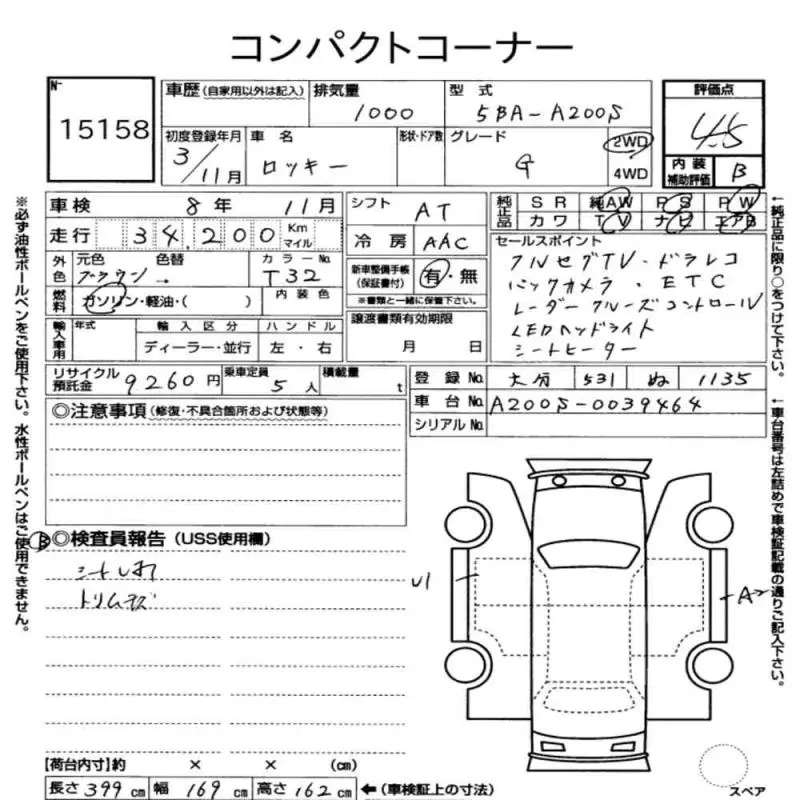 コンパクトコーナー
№ 15158
車歴(自家用以外は記入) 排気量 1000 型式 5BA-A200S 評価点 4.5
初度登録年月 3/11月 車名 ロッキー 形状・ドア数 グレード G 2WD 4WD 内装補助評価 B
車検 8年 11月 シフト AT 純正品 SR 純AW PS PW
走行 34,200 Km マイル 冷房 AAC カワ TV ナビ エアB
外色 元色 ブラウン 色替 カラーNo. T32 新車整備手帳(保証書付) 有・無
※書類と一緒に保管下さい。
燃料 ガソリン・軽油・( ) 内装色
セールスポイント
フルセグTV・ドラレコ
バックカメラ・ETC
レーダークルーズコントロール
LEDヘッドライト
シートヒーター
輸入車用 年式 輸入区分 ハンドル 譲渡書類有効期限
ディーラー・並行 左・右 月 日
リサイクル預託金 9260円 乗車定員 5人 積載量 t 登録No. 大分 531 ぬ 1135
車台No. A200S-0039464
シリアルNo.
◎注意事項(修復・不具合箇所および状態等)
B ◎検査員報告(USS使用欄)
シートしわ
トリムキズ
U1
A
【荷台内寸】約 × × (cm)
長さ 399 cm 幅 169 cm 高さ 162 cm ←(車検証上の寸法)
スペア
※必ず油性ボールペンをご使用下さい。水性ボールペンはご使用できません。
←純正品に限り○をつけて下さい。
←車台番号は左詰めで車検証記載の通りご記入下さい。